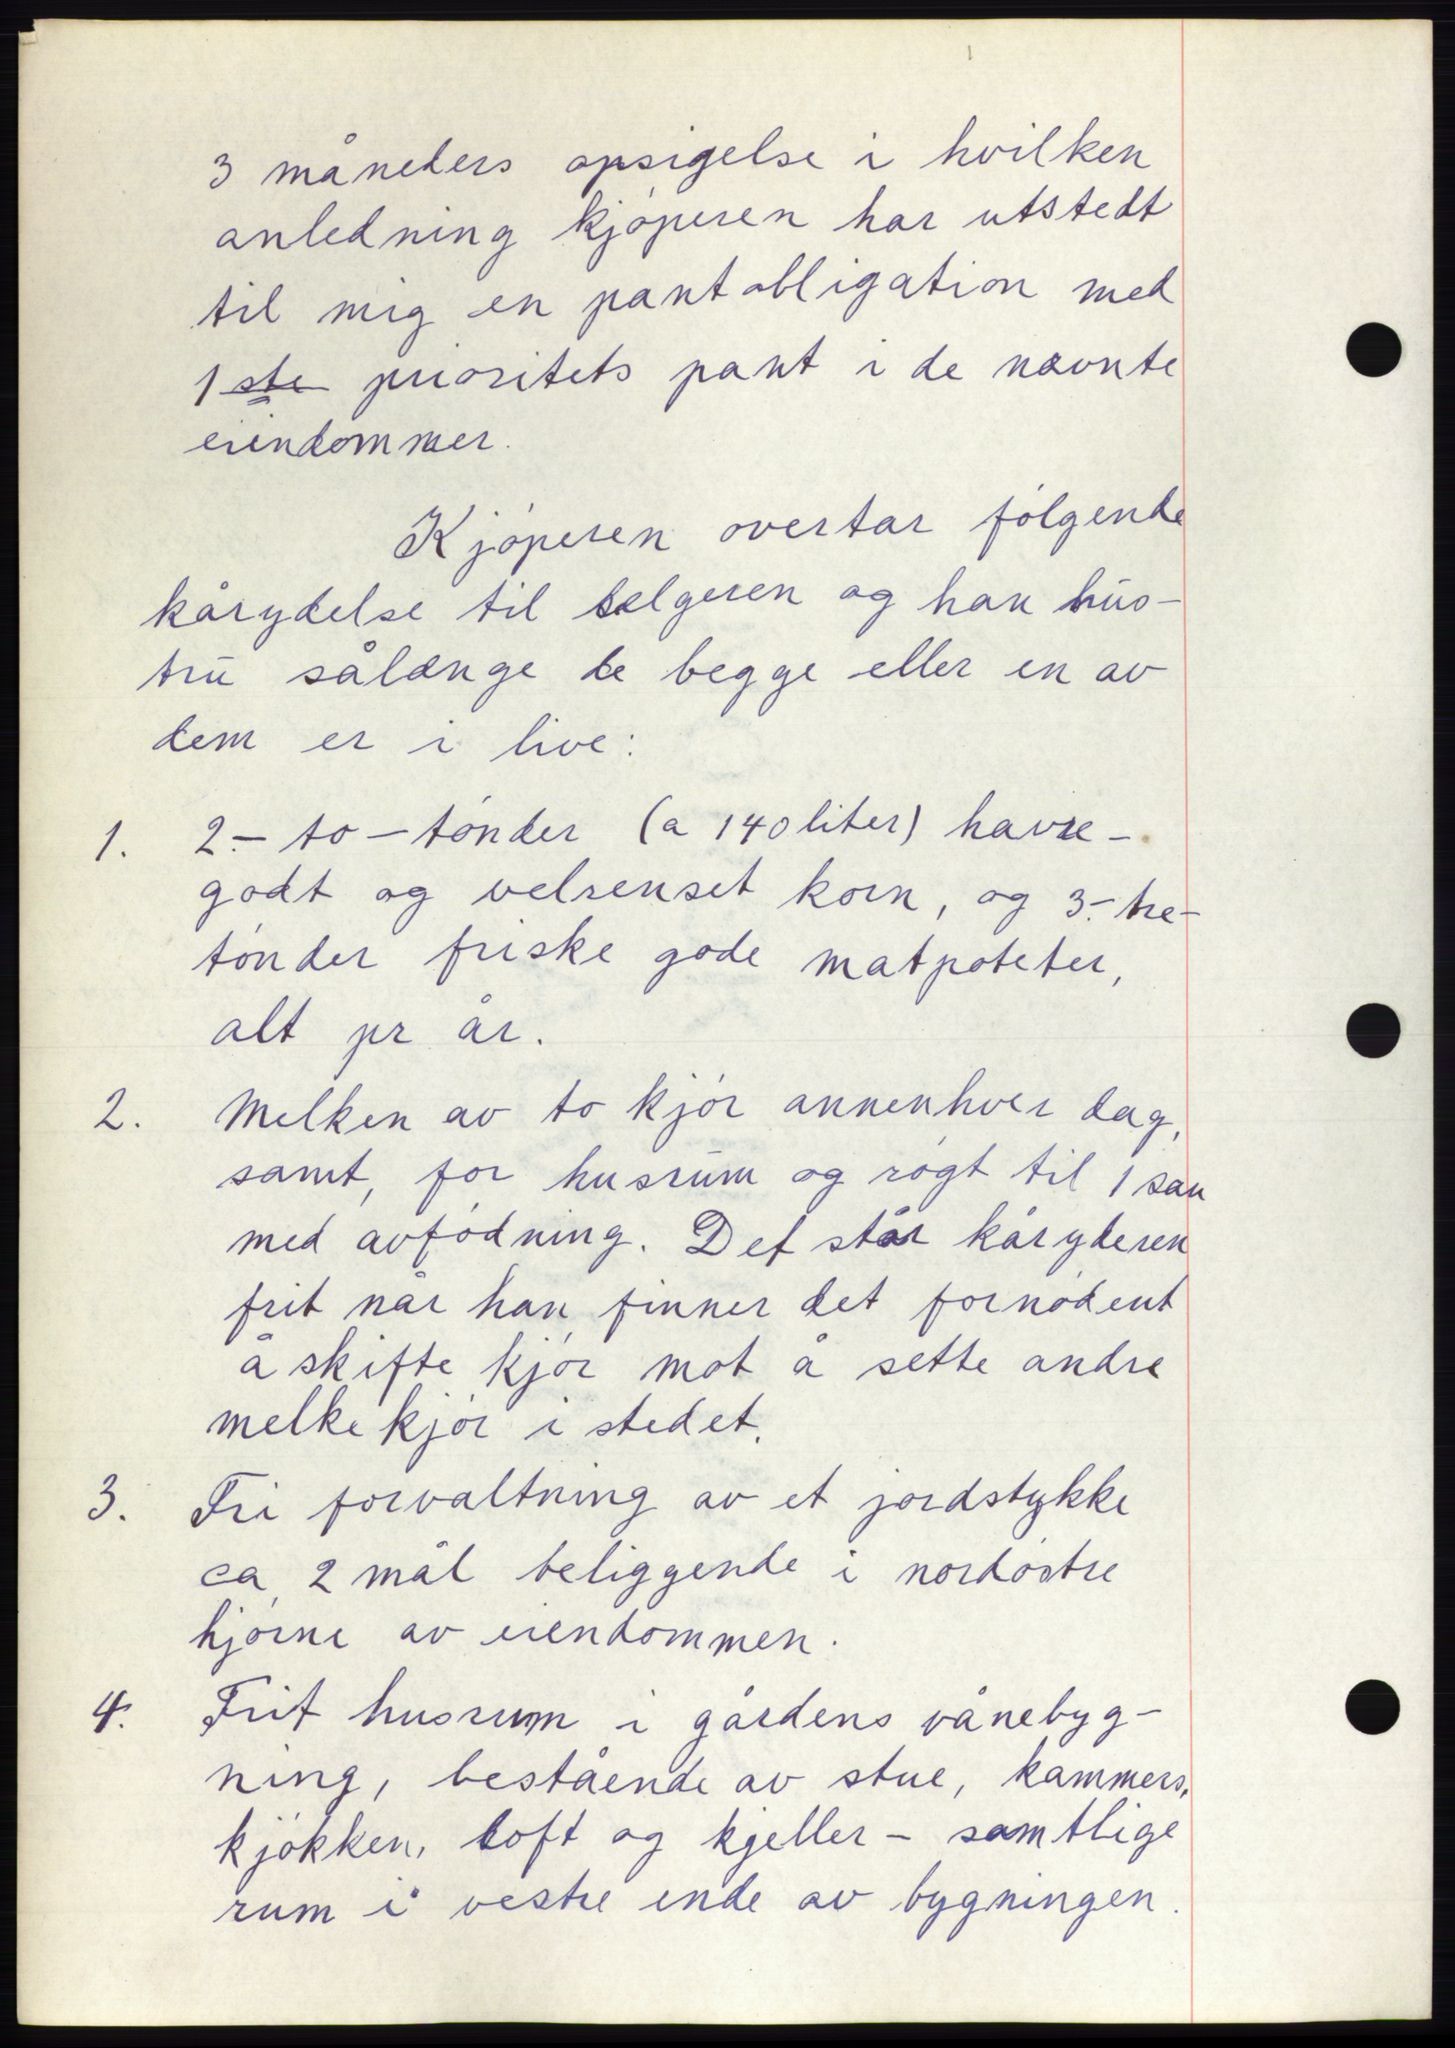 3 måneders opsigelse i hvilken
anledning kjøperen har utstedt
til mig en pantobligation med
1ste prioritets pant i de nævnte
eiendommer.
Kjøperen overtar følgende
kårydelse til selgeren og han hus-
tru sålænge de begge eller en av
dem er i live:
1. 2.- to - tønder (a 140 liter) havre -
godt og velrenset korn, og 3.- tre -
tønder friske gode matpoteter,
alt pr år.
2. Melken av to kjør annenhver dag,
samt, for husrum og røgt til 1 sau
med avfødning. Det står kåryderen
frit når han finner det fornødent
å skifte kjør mot å sette andre
melkekjør i stedet.
3. Fri forvaltning av et jordstykke
ca. 2 mål beliggende i nordøstre
hjørne av eiendommen.
4. Frit husrum i gårdens vånebyg-
ning, bestående av stue, kammers,
kjøkken, loft og kjeller - samtlige
rum i vestre ende av bygningen.